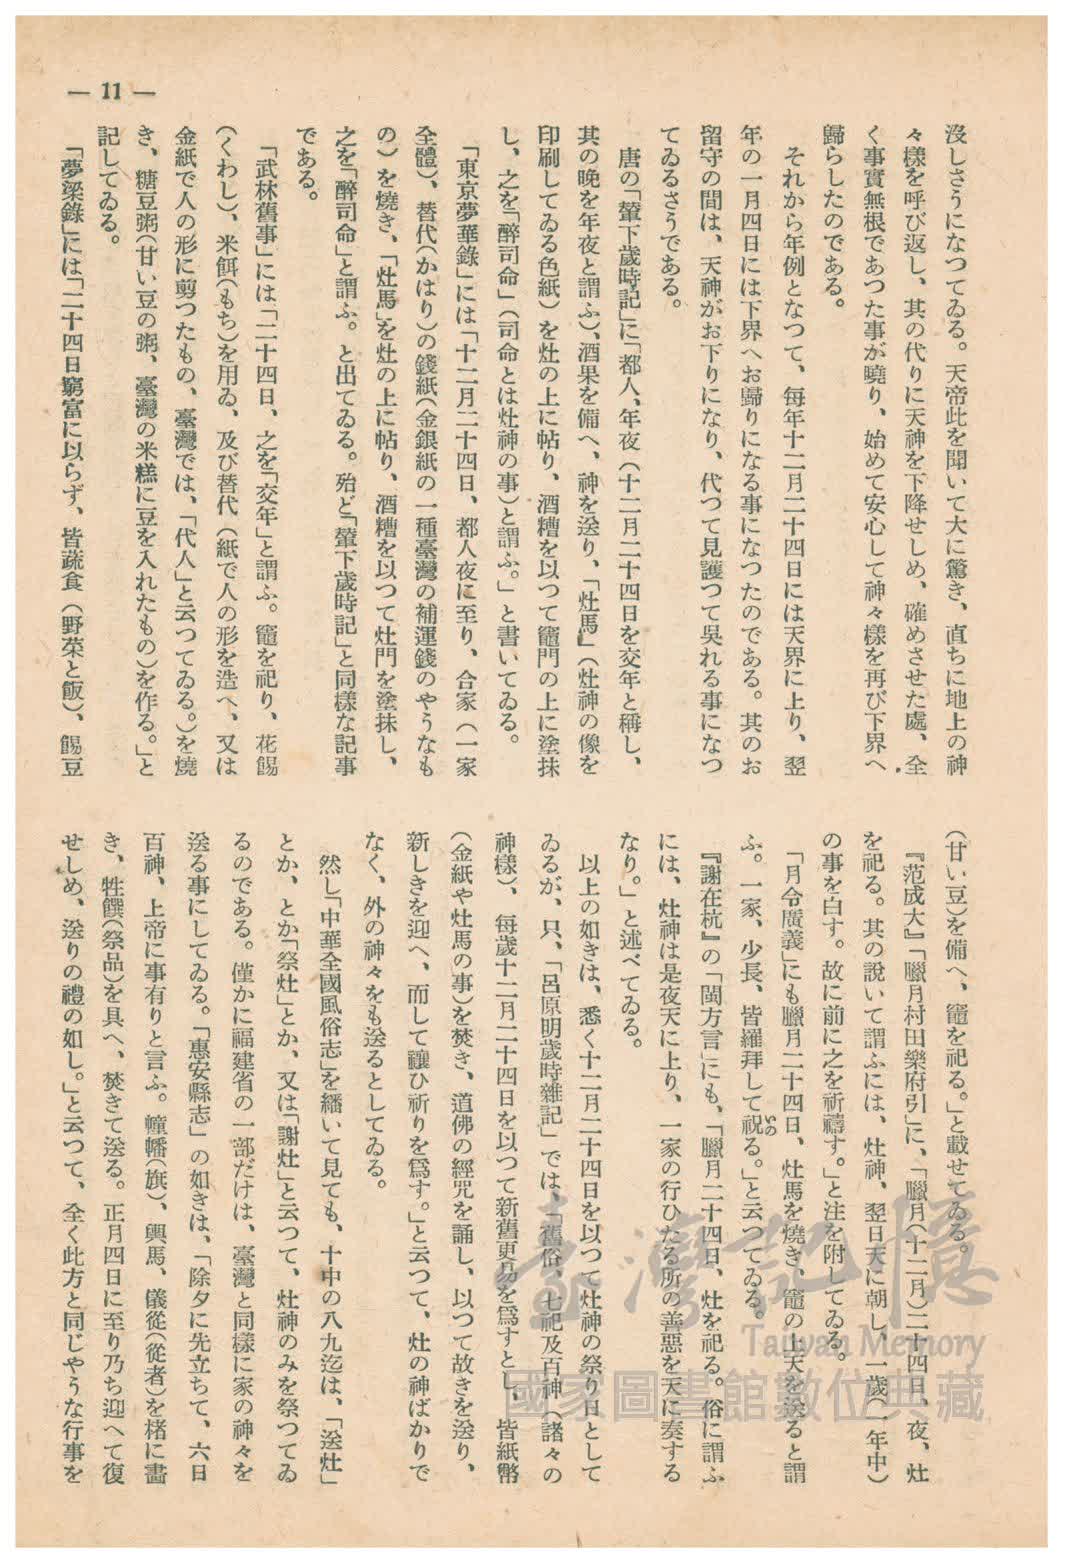 — 11 —
沒しさうになつてゐる。天帝此を聞いて大に驚き、直ちに地上の神
々樣を呼び返し、其の代りに天神を下降せしめ、確めさせた處、全
く事實無根であつた事が曉り、始めて安心して神々樣を再び下界へ
歸らしたのである。
それから年例となつて、每年十二月二十四日には天界に上り、翌
年の一月四日には下界へお歸りになる事になつたのである。其のお
留守の間は、天神がお下りになり、代つて見護つて吳れる事になつ
てゐるさうである。
唐の「輦下歲時記」に「都人、年夜（十二月二十四日を交年と稱し、
其の晚を年夜と謂ふ）、酒果を備へ、神を送り、「灶馬」（灶神の像を
印刷してゐる色紙）を灶の上に帖り、酒糟を以つて竈門の上に塗抹
し、之を「醉司命」（司命とは灶神の事）と謂ふ。」と書いてゐる。
「東京夢華錄」には「十二月二十四日、都人夜に至り、合家（一家
全體）、替代（かはり）の錢紙（金銀紙の一種臺灣の補運錢のやうなも
の）を燒き、「灶馬」を灶の上に帖り、酒糟を以つて灶門を塗抹し、
之を「醉司命」と謂ふ。と出てゐる。殆ど「輦下歲時記」と同樣な記事
である。
「武林舊事」には「二十四日、之を「交年」と謂ふ。竈を祀り、花餳
（くわし）、米餌（もち）を用ゐ、及び替代（紙で人の形を造へ、又は
金紙で人の形に剪つたもの、臺灣では、「代人」と云つてゐる。）を燒
き、糖豆粥（甘い豆の粥、臺灣の米糕に豆を入れたもの）を作る。」と
記してゐる。
「夢粱錄」には「二十四日窮富に以らず、皆蔬食（野菜と飯）、餳豆
（甘い豆）を備へ、竈を祀る。」と載せてゐる。
『范成大』「臘月村田樂府引」に、「臘月（十二月）二十四日、夜、灶
を祀る。其の說いて謂ふには、灶神、翌日天に朝し、一歲（一年中）
の事を白す。故に前に之を祈禱す。」と注を附してゐる。
「月令廣義」にも臘月二十四日、灶馬を燒き、竈の上天を送ると謂
ふ。一家、少長、皆羅拜して祝いのる。」と云つてゐる。
『謝在杭』の「閩方言」にも、「臘月二十四日、灶を祀る。俗に謂ふ
には、灶神は是夜天に上り、一家の行ひたる所の善惡を天に奏する
なり。」と述べてゐる。
以上の如きは、悉く十二月二十四日を以つて灶神の祭り日として
ゐるが、只、「呂原明歲時雜記」では、「舊俗、七祀及百神（諸々の
神樣）、每歲十二月二十四日を以つて新舊更易を爲すとし、皆紙幣
（金紙や灶馬の事）を焚き、道佛の經咒を誦し、以つて故きを送り、
新しきを迎へ、而して禳ひ祈りを爲す。」と云つて、灶の神ばかりで
なく、外の神々をも送るとしてゐる。
然し「中華全國風俗志」を繙いて見ても、十中の八九迄は、「送灶」
とか、とか「祭灶」とか、又は「謝灶」と云つて、灶神のみを祭つてゐ
るのである。僅かに福建省の一部だけは、臺灣と同樣に家の神々を
送る事にしてゐる。「惠安縣志」の如きは、「除夕に先立ちて、六日
百神、上帝に事有りと言ふ。幢幡（旗）、輿馬、儀從（從者）を楮に畫
き、牲饌（祭品）を具へ、焚きて送る。正月四日に至り乃ち迎へて復
せしめ、送りの禮の如し。」と云つて、全く此方と同じやうな行事を
臺灣記憶
Taiwan Memory
國家圖書館數位典藏